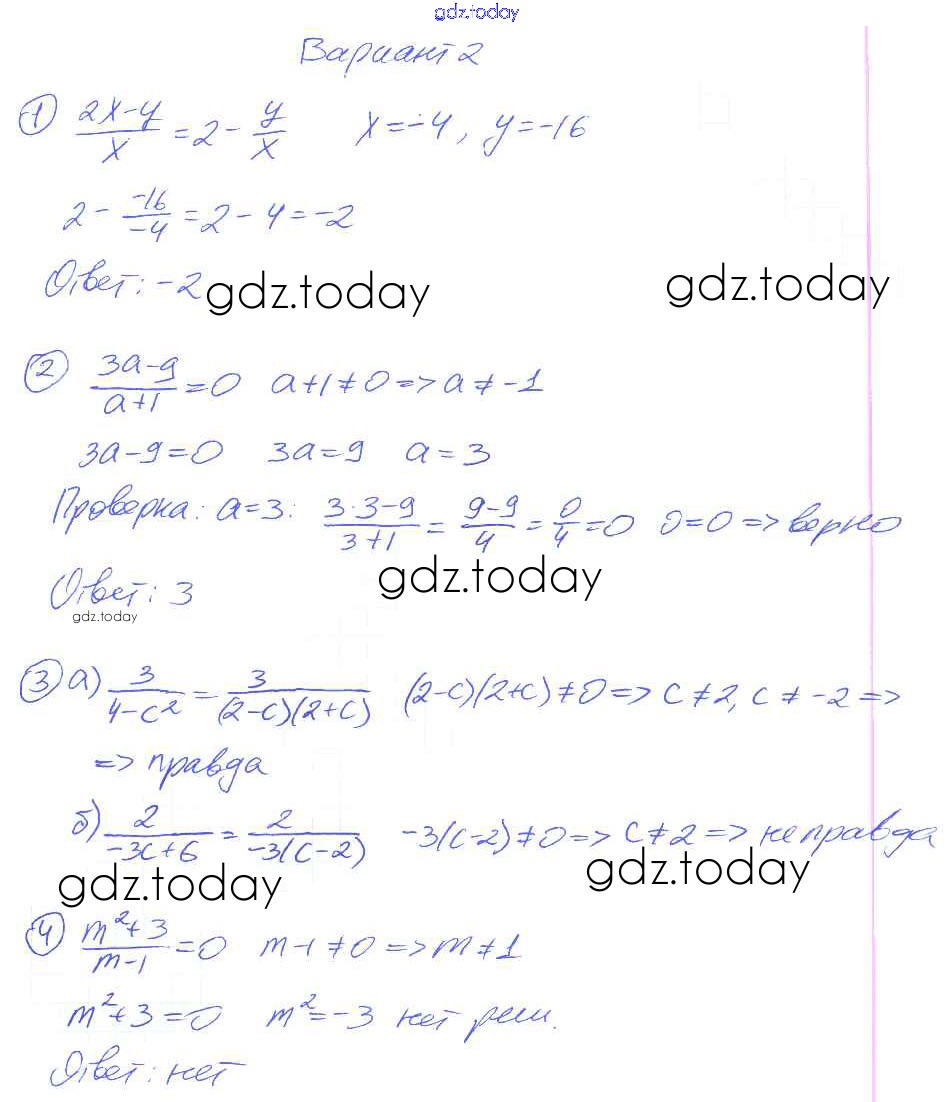 gdz.today
Вариант 2
① (2x-y)/x = 2 - y/x x = -4, y = -16
2 - (-16)/(-4) = 2 - 4 = -2
Ответ: -2 gdz.today gdz.today
② (3a-9)/(a+1) = 0 a+1≠0 => a≠-1
3a-9=0 3a=9 a=3
Проверка: a=3: (3·3-9)/(3+1) = (9-9)/4 = 0/4 = 0 0=0 => верно
Ответ: 3 gdz.today
gdz.today
③ а) 3/(4-c²) = 3/((2-c)(2+c)) (2-c)(2+c)≠0 => c≠2, c≠-2 =>
=> правда
б) 2/(-3c+6) = 2/(-3(c-2)) -3(c-2)≠0 => c≠2 => неправда
gdz.today gdz.today
④ (m²+3)/(m-1) = 0 m-1≠0 => m≠1
m²+3=0 m²=-3 нет реш.
Ответ: нет